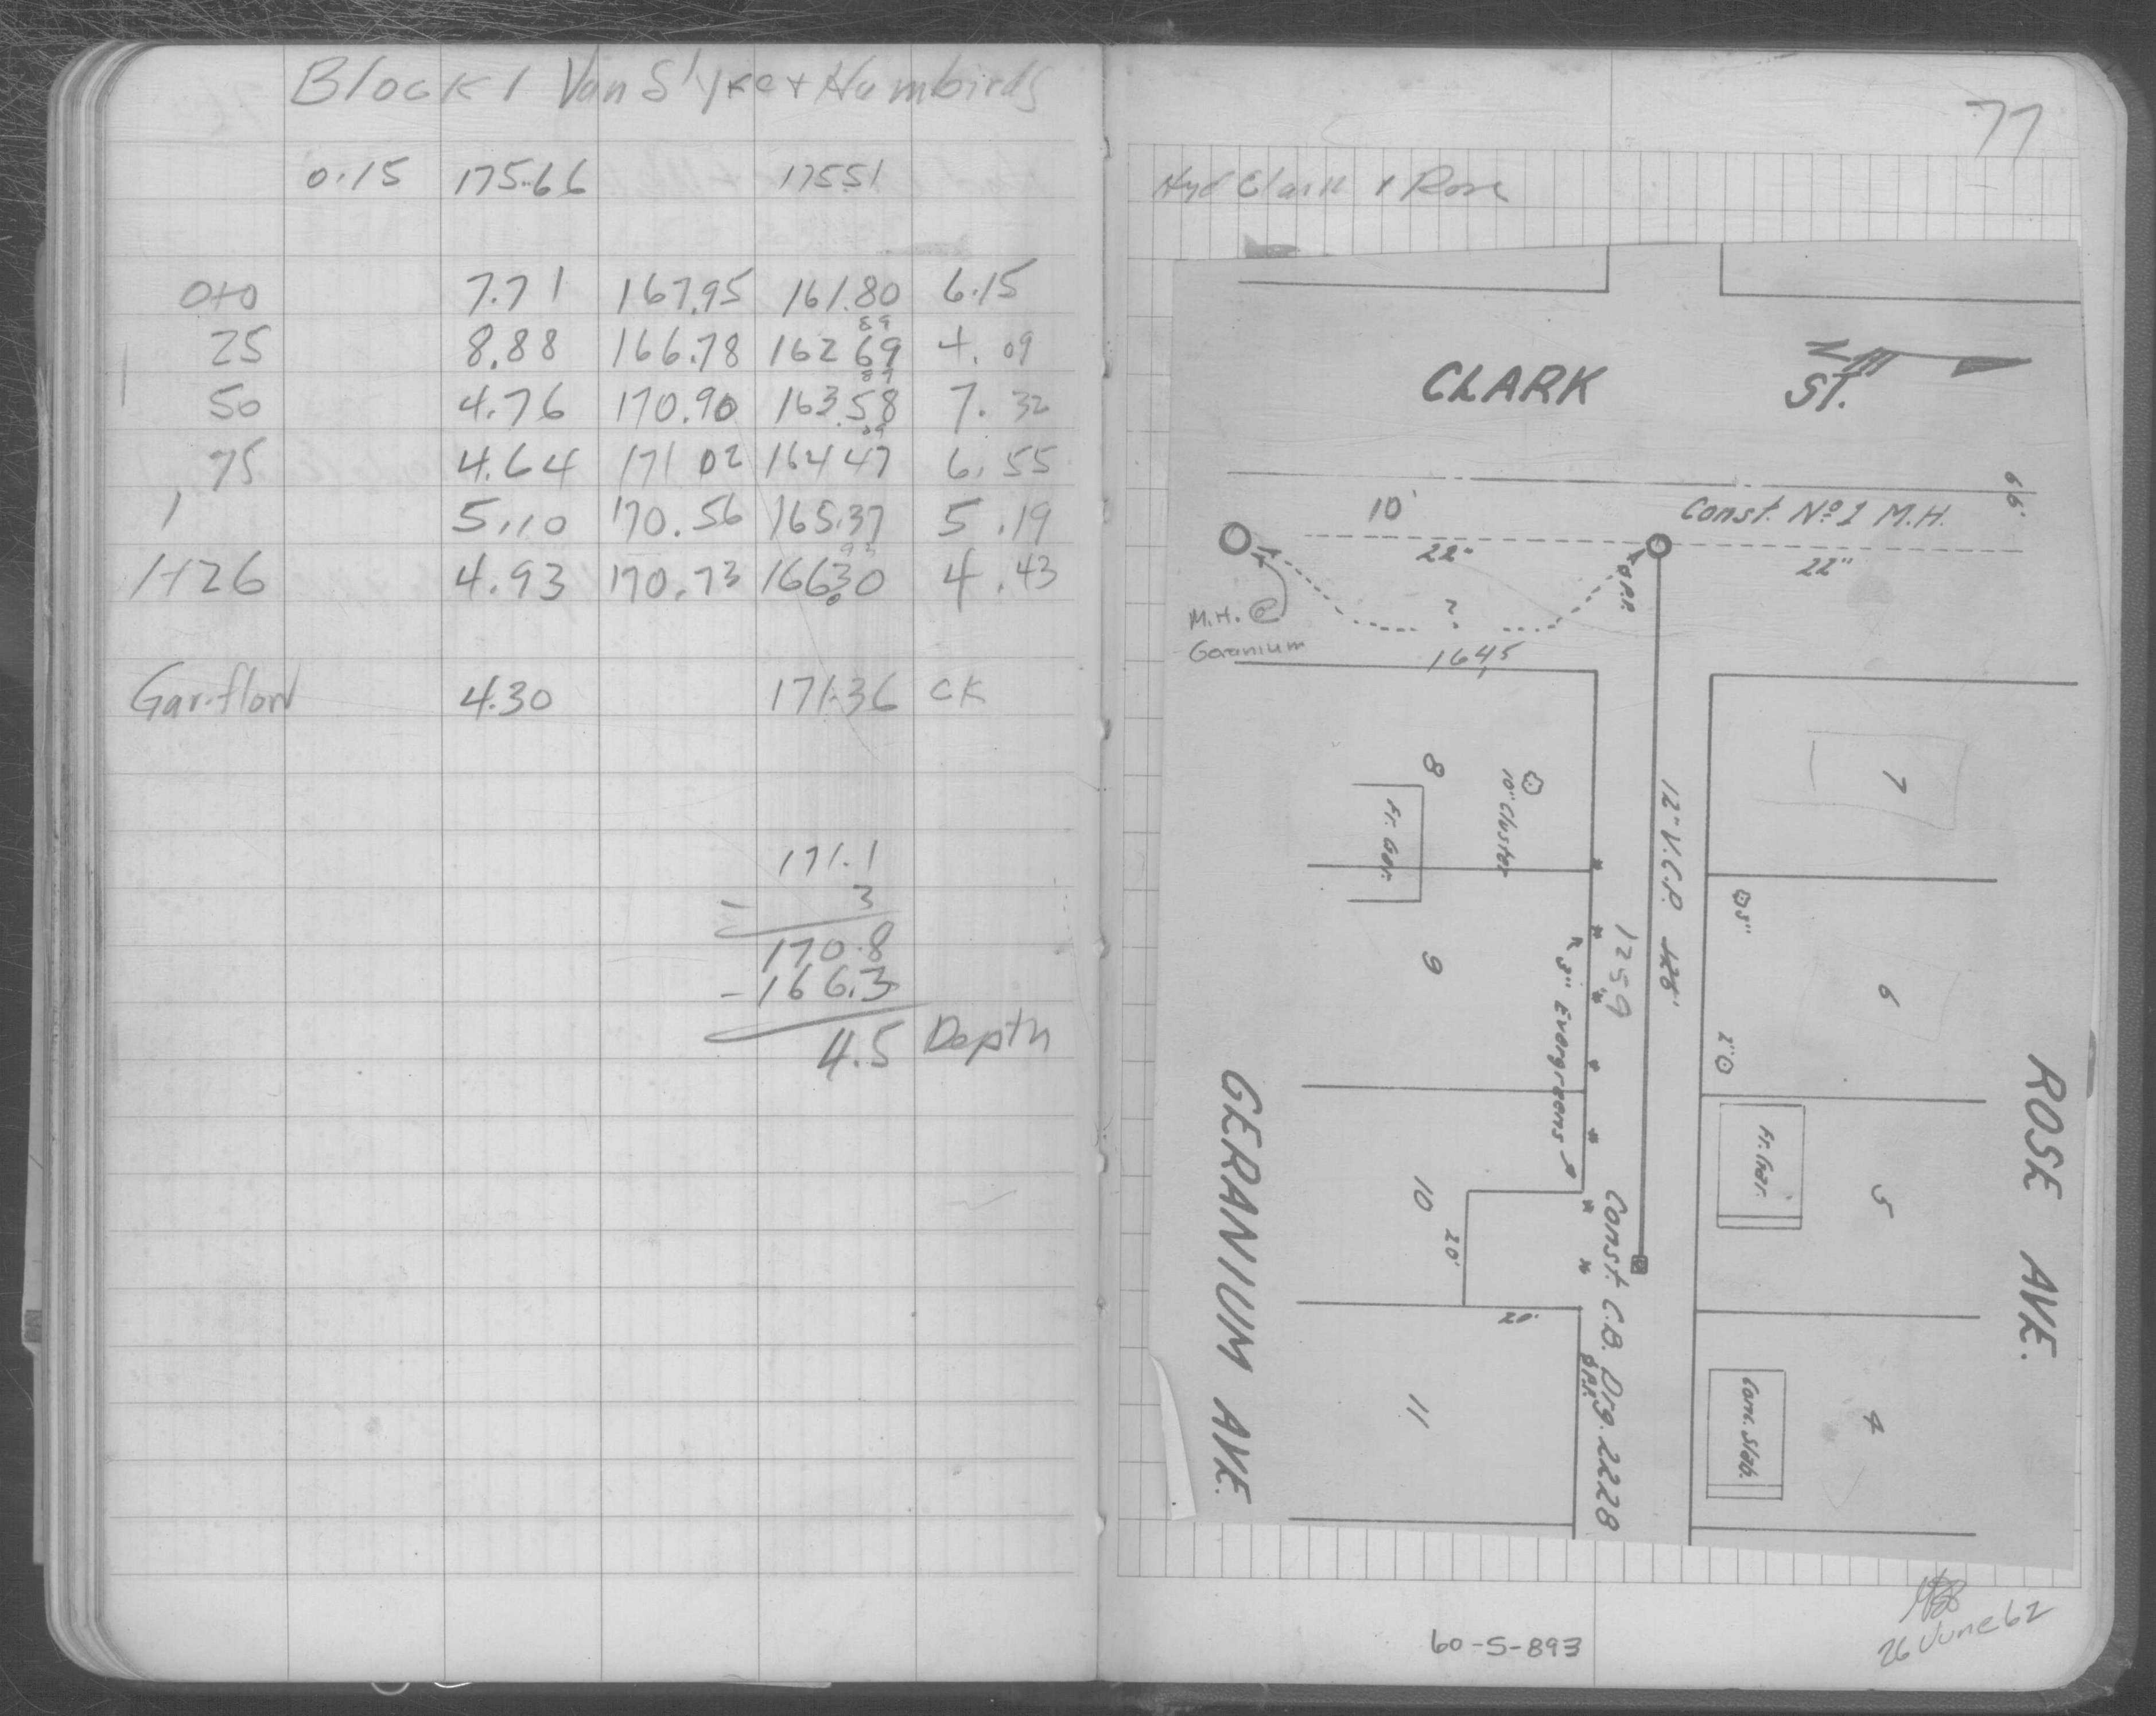 Block 1 Van Slyke + Humbirds
0.15 175.66 175.51
0+0 7.71 167.95 161.80 6.15
89
25 8.88 166.78 162 69 4.09
89
50 4.76 170.90 163.58 7.32
89
75 4.64 171 02 164 47 6.55
1 5.10 170.56 165.37 5.19
93
1+26 4.93 170.73 166.30 4.43
Gar. floor 4.30 171.36 CK
171.1
- 3
170.8
-166.3
4.5 Depth
77
Hyd Clark & Rose
CLARK ST.
N
66'
10'
Const. No 1 M.H.
22"
22"
P.P.
M.H. @
Geranium
?
164.5
8
10" Cluster
Fr. Gar.
7
12" V.C.P. 128'
125.9
3"
9
3" Evergreens
6
2"
10
20'
20'
Fr. Gar.
5
Const. C.B. Drg. 2228
P.P.
11
Conc. Slab.
4
GERANIUM AVE.
ROSE AVE.
60-S-893
26 June 62